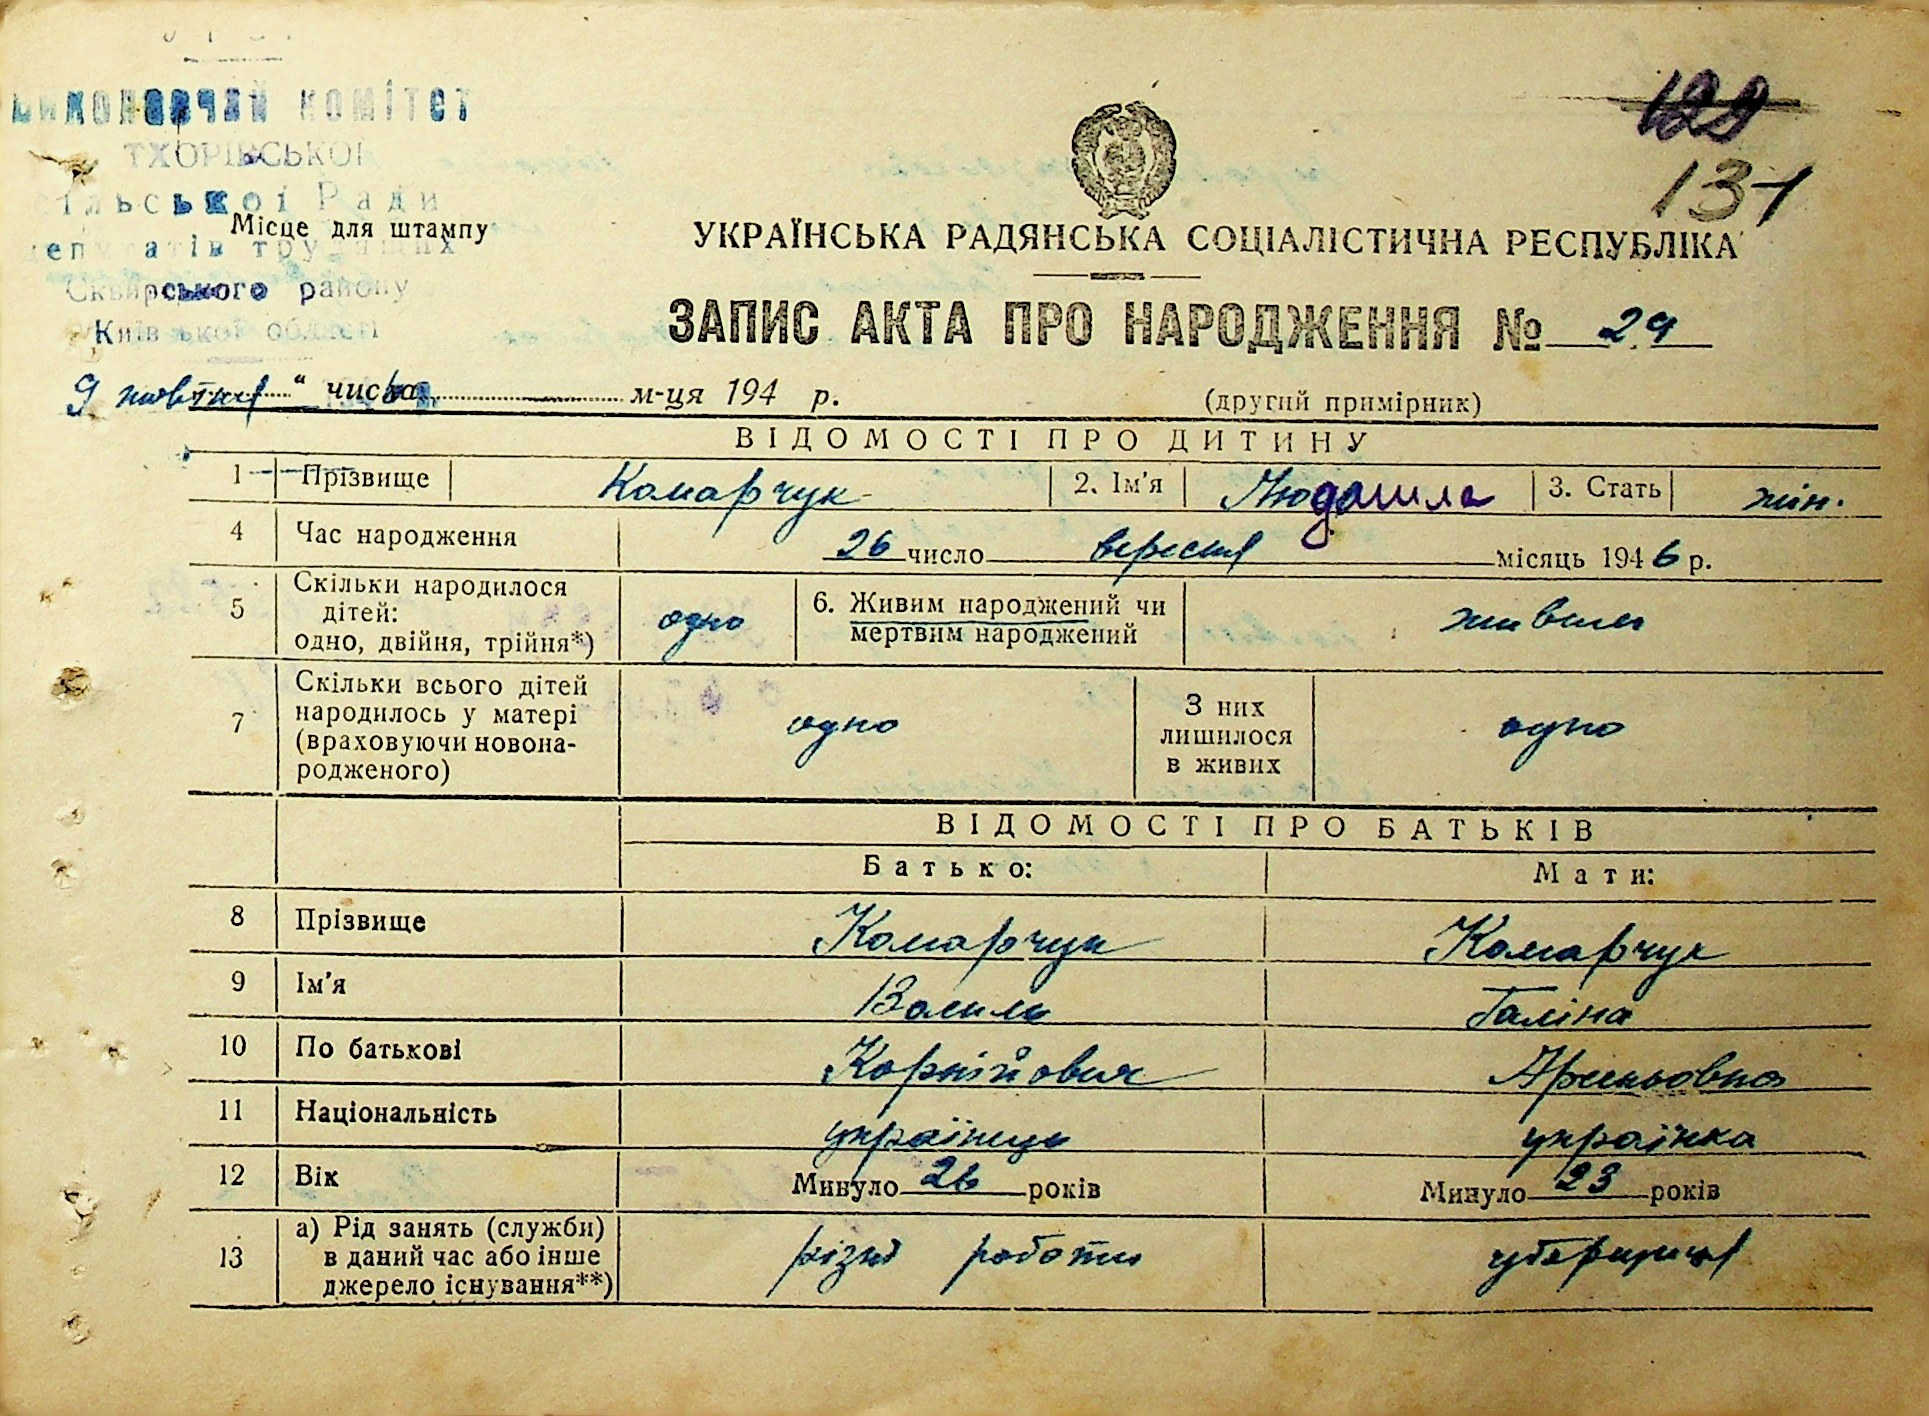 Виконавчий комітет
ТХОРІВСЬКОЇ
сільської Ради
депутатів трудящих
Сквирського району
Київської області
Місце для штампу
129
131
УКРАЇНСЬКА РАДЯНСЬКА СОЦІАЛІСТИЧНА РЕСПУБЛІКА
ЗАПИС АКТА ПРО НАРОДЖЕННЯ № 29
9 жовтня " числа м-ця 194 р.
(другий примірник)
ВІДОМОСТІ ПРО ДИТИНУ
1 Прізвище Комарчук 2. Ім'я Людмила 3. Стать жін.
4 Час народження 26 число вересня місяць 1946 р.
5 Скільки народилося дітей: одно, двійня, трійня*) одно 6. Живим народжений чи мертвим народжений живим
7 Скільки всього дітей народилось у матері (враховуючи новонародженого) одно З них лишилося в живих одно
ВІДОМОСТІ ПРО БАТЬКІВ
Батько: Мати:
8 Прізвище Комарчук Комарчук
9 Ім'я Василь Галіна
10 По батькові Корнійович Арсеньовна
11 Національність українець українка
12 Вік Минуло 26 років Минуло 23 років
13 а) Рід занять (служби) в даний час або інше джерело існування**) різні роботи уборщиця